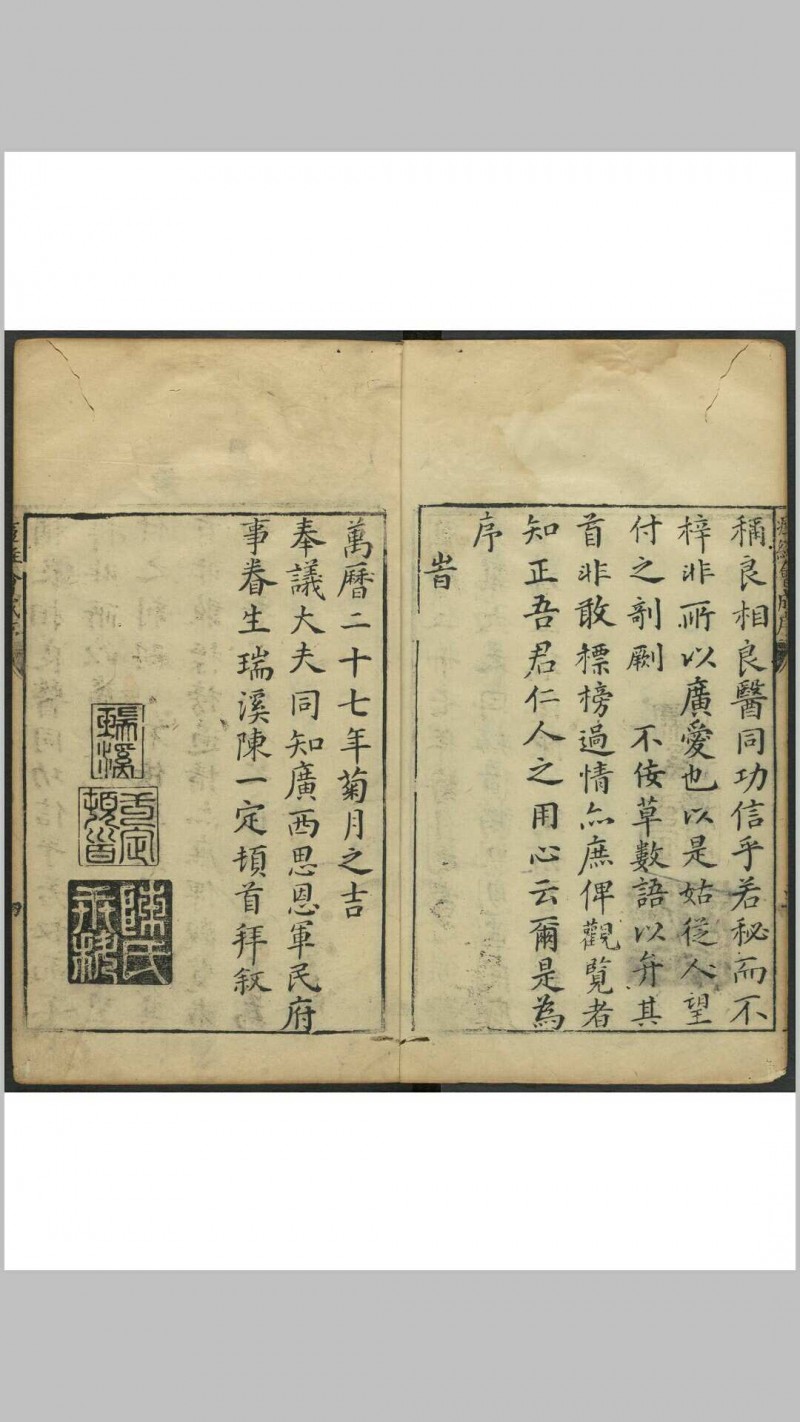 稱良相良醫同功信乎若秘而不
梓非所以廣愛也以是姑從人望
付之剞劂　不佞草數語以弁其
首非敢標榜過情亦庶俾觀覽者
知正吾君仁人之用心云爾是為
序
旹
萬曆二十七年菊月之吉
奉議大夫同知廣西思恩軍民府
事眷生瑞溪陳一定頓首拜敘
瑞溪
陳氏